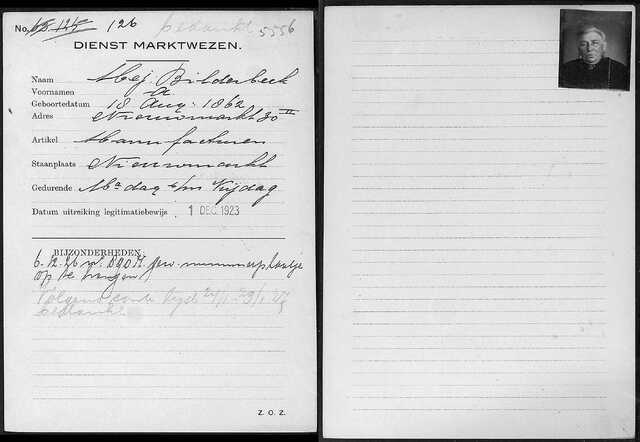 No. 126 bedankt 5556
DIENST MARKTWEZEN.
Naam Mej. Bilderbeek
Voornamen A.
Geboortedatum 18 Aug. 1862
Adres Nieuwmarkt 30 II
Artikel Manufacturen
Staanplaats Nieuwmarkt
Gedurende Maandag t/m Vrijdag
Datum uitreiking legitimatiebewijs 1 DEC. 1923
BIJZONDERHEDEN:
6.12.26 nummerplaatje
op te hangen
Volgens
bedankt
Z. O. Z.